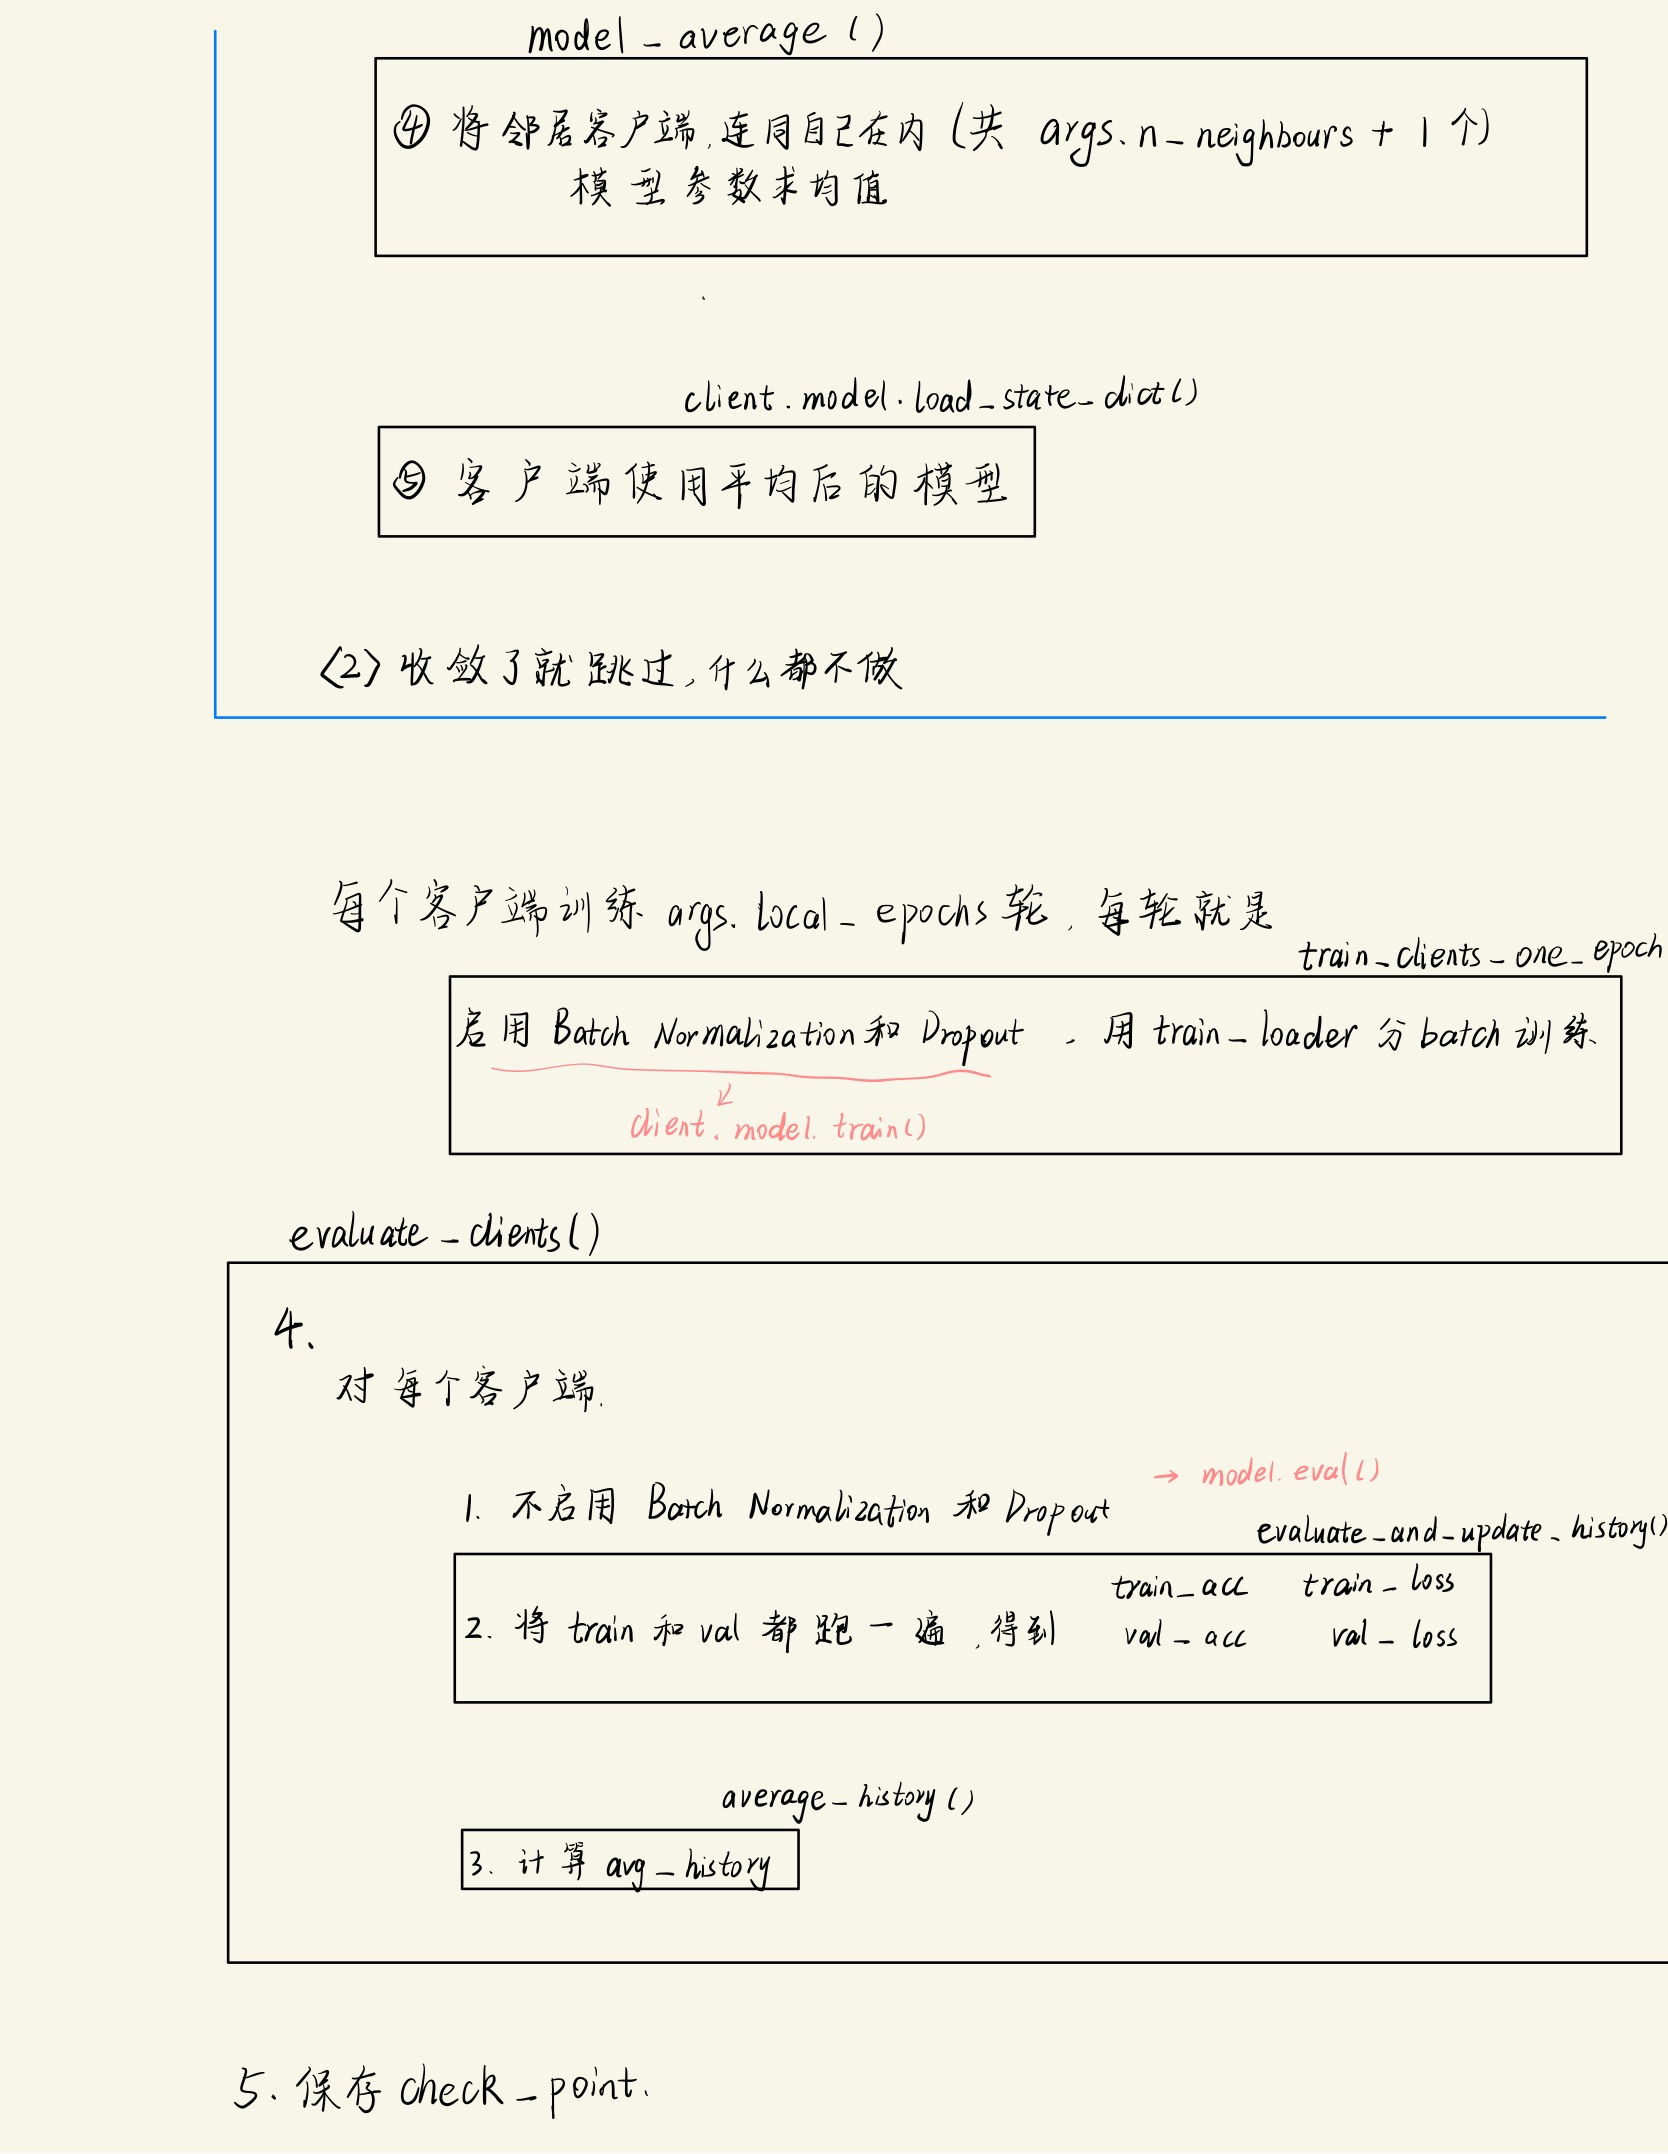 model_average()
④ 将邻居客户端,连同自己在内(共 args.n_neighbours + 1 个)
模型参数求均值
client.model.load_state_dict()
⑤ 客户端使用平均后的模型
<2> 收敛了就跳过,什么都不做
每个客户端训练 args.local_epochs 轮,每轮就是
train_clients_one_epoch
启用 Batch Normalization 和 Dropout , 用 train_loader 分 batch 训练
client.model.train()
evaluate_clients()
4、
对每个客户端.
→ model.eval()
1. 不启用 Batch Normalization 和 Dropout
evaluate_and_update_history()
train_acc train_loss
2. 将 train 和 val 都跑一遍,得到
val_acc val_loss
average_history()
3. 计算 avg_history
5. 保存 check_point.